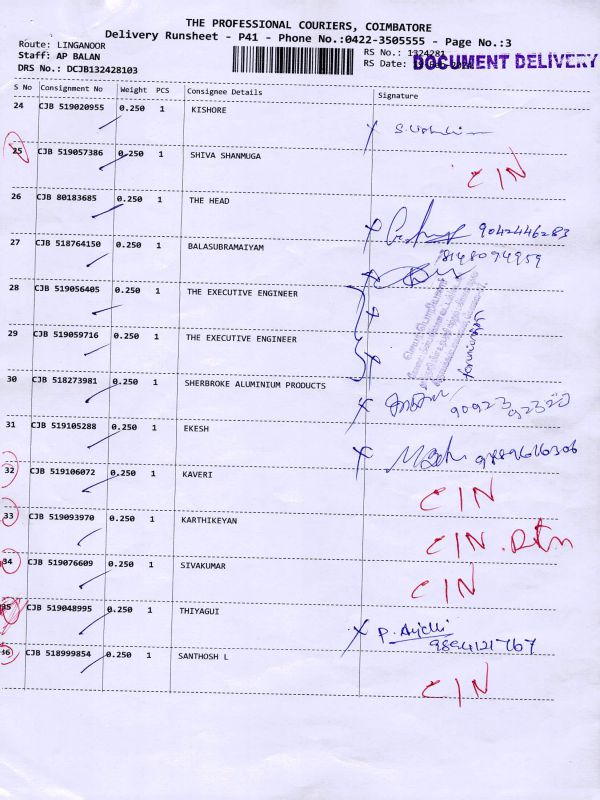 THE PROFESSIONAL COURIERS, COIMBATORE
Delivery Runsheet - P41 - Phone No.:0422-3505555 - Page No.:3
Route: LINGANOOR
Staff: AP BALAN
DRS No.: DCJB132428103
RS No.: 1324281
RS Date:
DOCUMENT DELIVERY
S No Consignment No Weight PCS Consignee Details Signature
24 CJB 519020955 0.250 1 KISHORE
25 CJB 519057386 0.250 1 SHIVA SHANMUGA C/N
26 CJB 80183685 0.250 1 THE HEAD 9042446283
27 CJB 518764150 0.250 1 BALASUBRAMAIYAM 8148094959
28 CJB 519056405 0.250 1 THE EXECUTIVE ENGINEER
29 CJB 519059716 0.250 1 THE EXECUTIVE ENGINEER
30 CJB 518273981 0.250 1 SHERBROKE ALUMINIUM PRODUCTS
31 CJB 519105288 0.250 1 EKESH
32 CJB 519106072 0.250 1 KAVERI C/N
33 CJB 519093970 0.250 1 KARTHIKEYAN C/N. Rtn
34 CJB 519076609 0.250 1 SIVAKUMAR C/N
35 CJB 519048995 0.250 1 THIYAGUI 9894121767
36 CJB 518999854 0.250 1 SANTHOSH L C/N